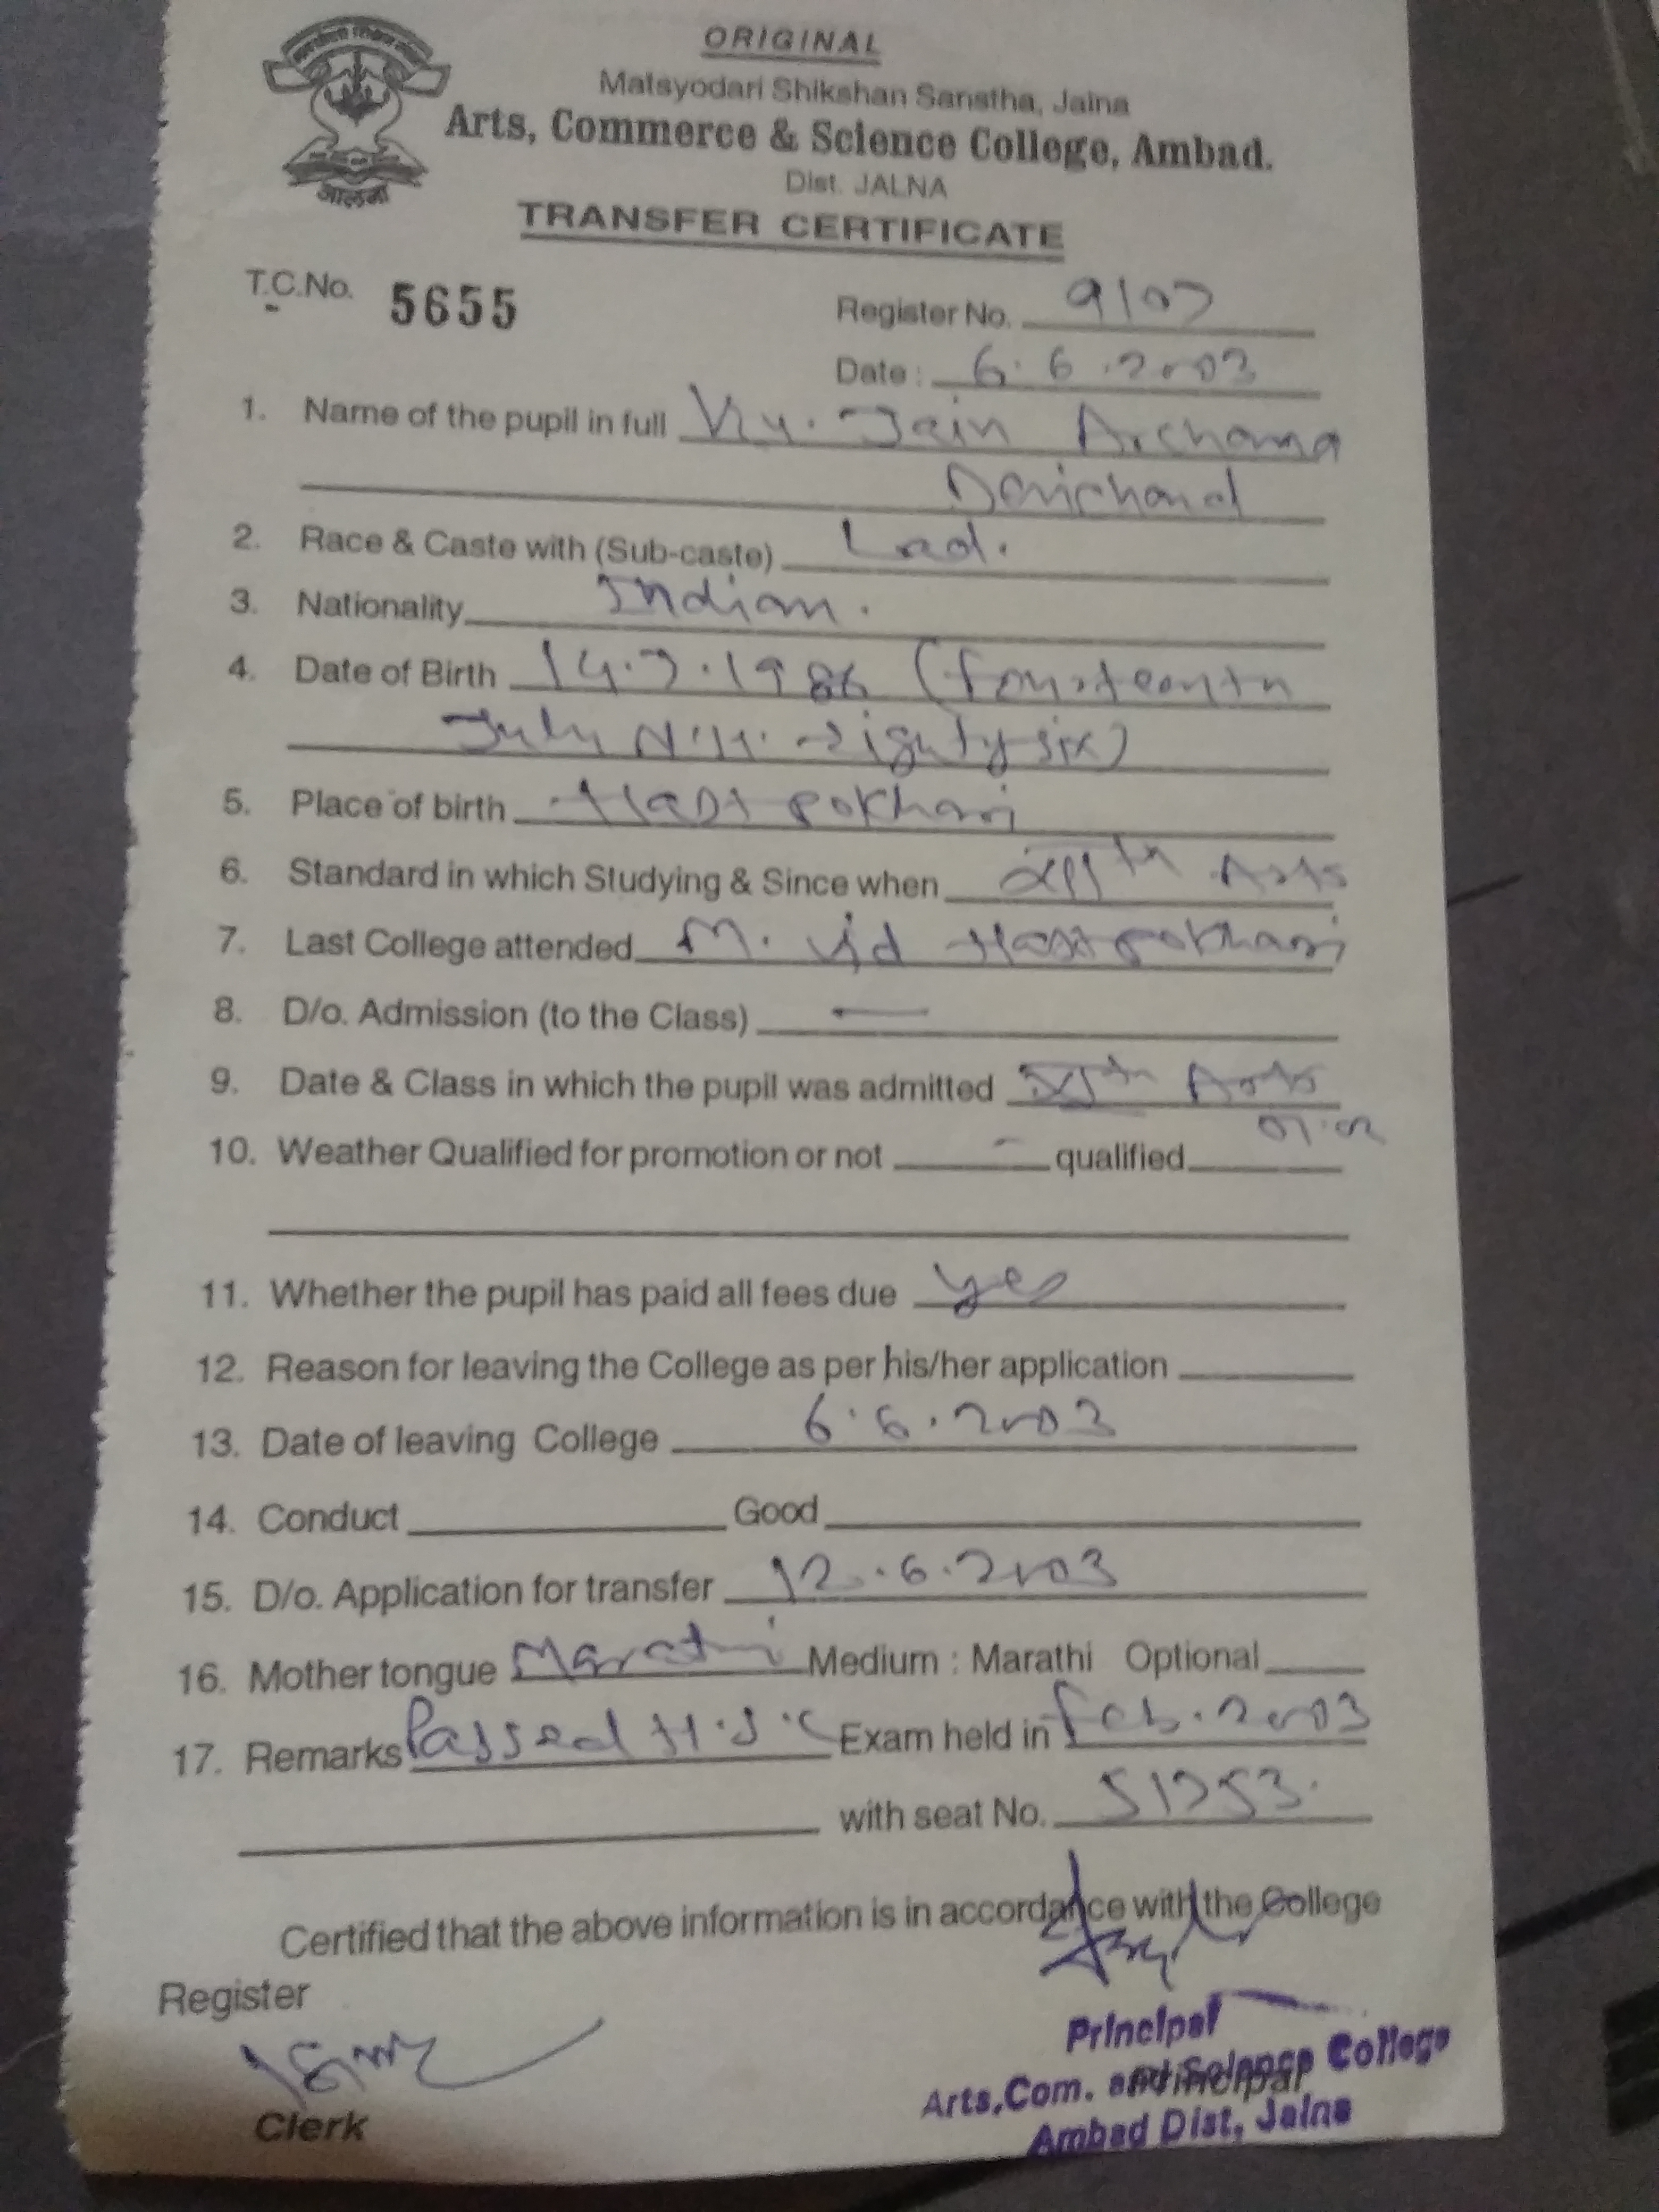 ORIGINAL
Matsyodari Shikshan Sanstha, Jalna
Arts, Commerce & Science College, Ambad.
Dist. JALNA
TRANSFER CERTIFICATE
T.C.No. 5655
Register No. 9107
Date: 6.6.2003
1. Name of the pupil in full Ku. Jain Archana
Devichand
2. Race & Caste with (Sub-caste) Lad.
3. Nationality Indian.
4. Date of Birth 14.7.1986 (Fourteenth
July eighty six)
5. Place of birth Hast pokhari
6. Standard in which Studying & Since when XIIth Arts
7. Last College attended M. Vid Hast pokhari
8. D/o. Admission (to the Class) —
9. Date & Class in which the pupil was admitted XIth Arts
01.02
10. Weather Qualified for promotion or not - qualified
11. Whether the pupil has paid all fees due yes
12. Reason for leaving the College as per his/her application
13. Date of leaving College 6.6.2003
14. Conduct Good
15. D/o. Application for transfer 12.6.2003
16. Mother tongue Marathi Medium : Marathi Optional
17. Remarks Passed H.S.C Exam held in Feb. 2003
with seat No. 51753.
Certified that the above information is in accordance with the College
Register
Principal
Arts,Com. and Science College
Principal
Ambad Dist, Jalna
Clerk